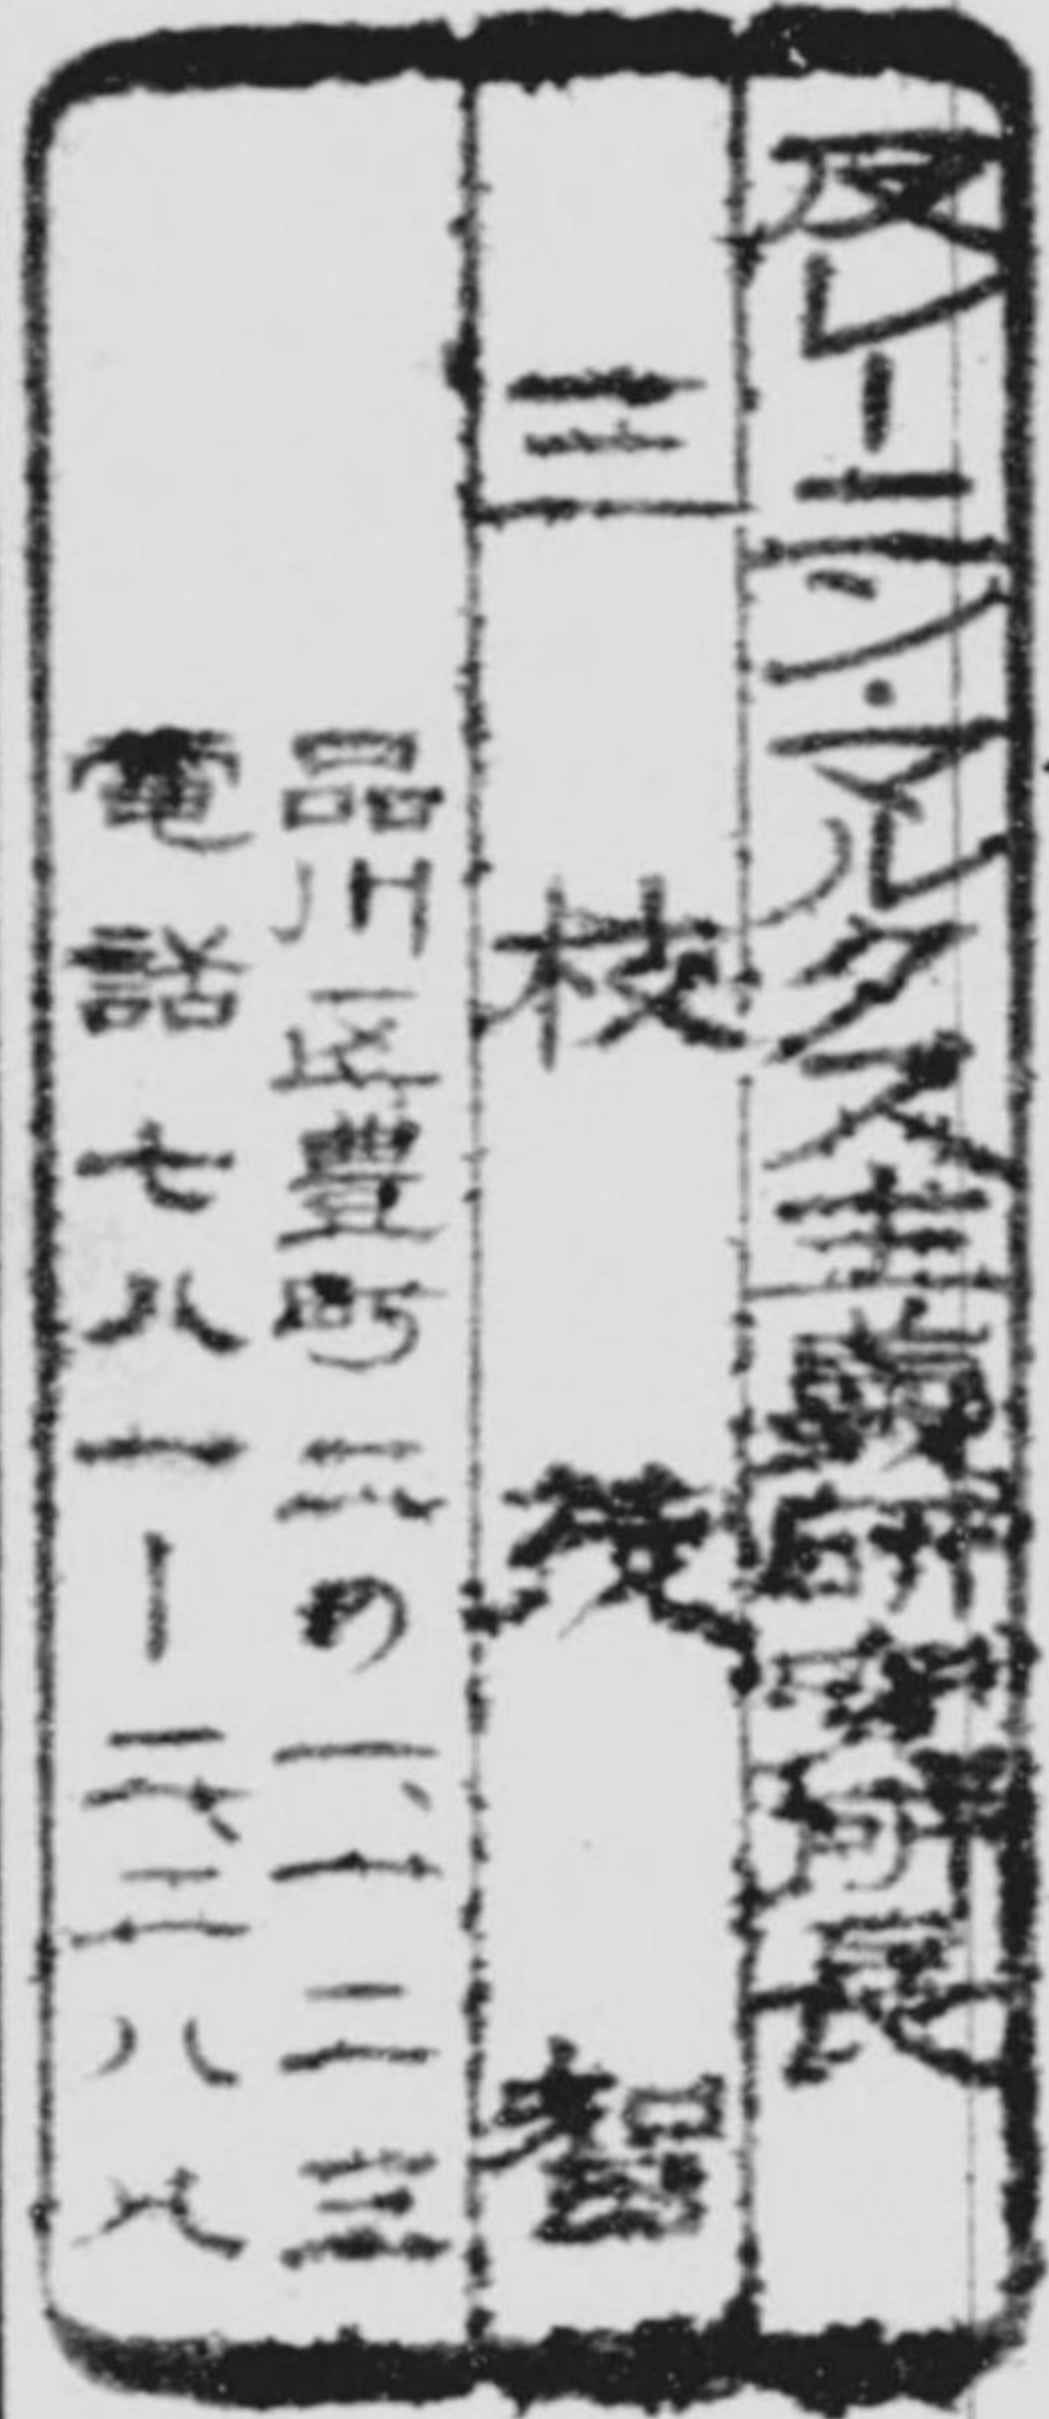 反レーニン・マルクス主義研究所長
三枝茂智
品川区豊町二ノ六ノ二三
電話七八一ー二六三八八